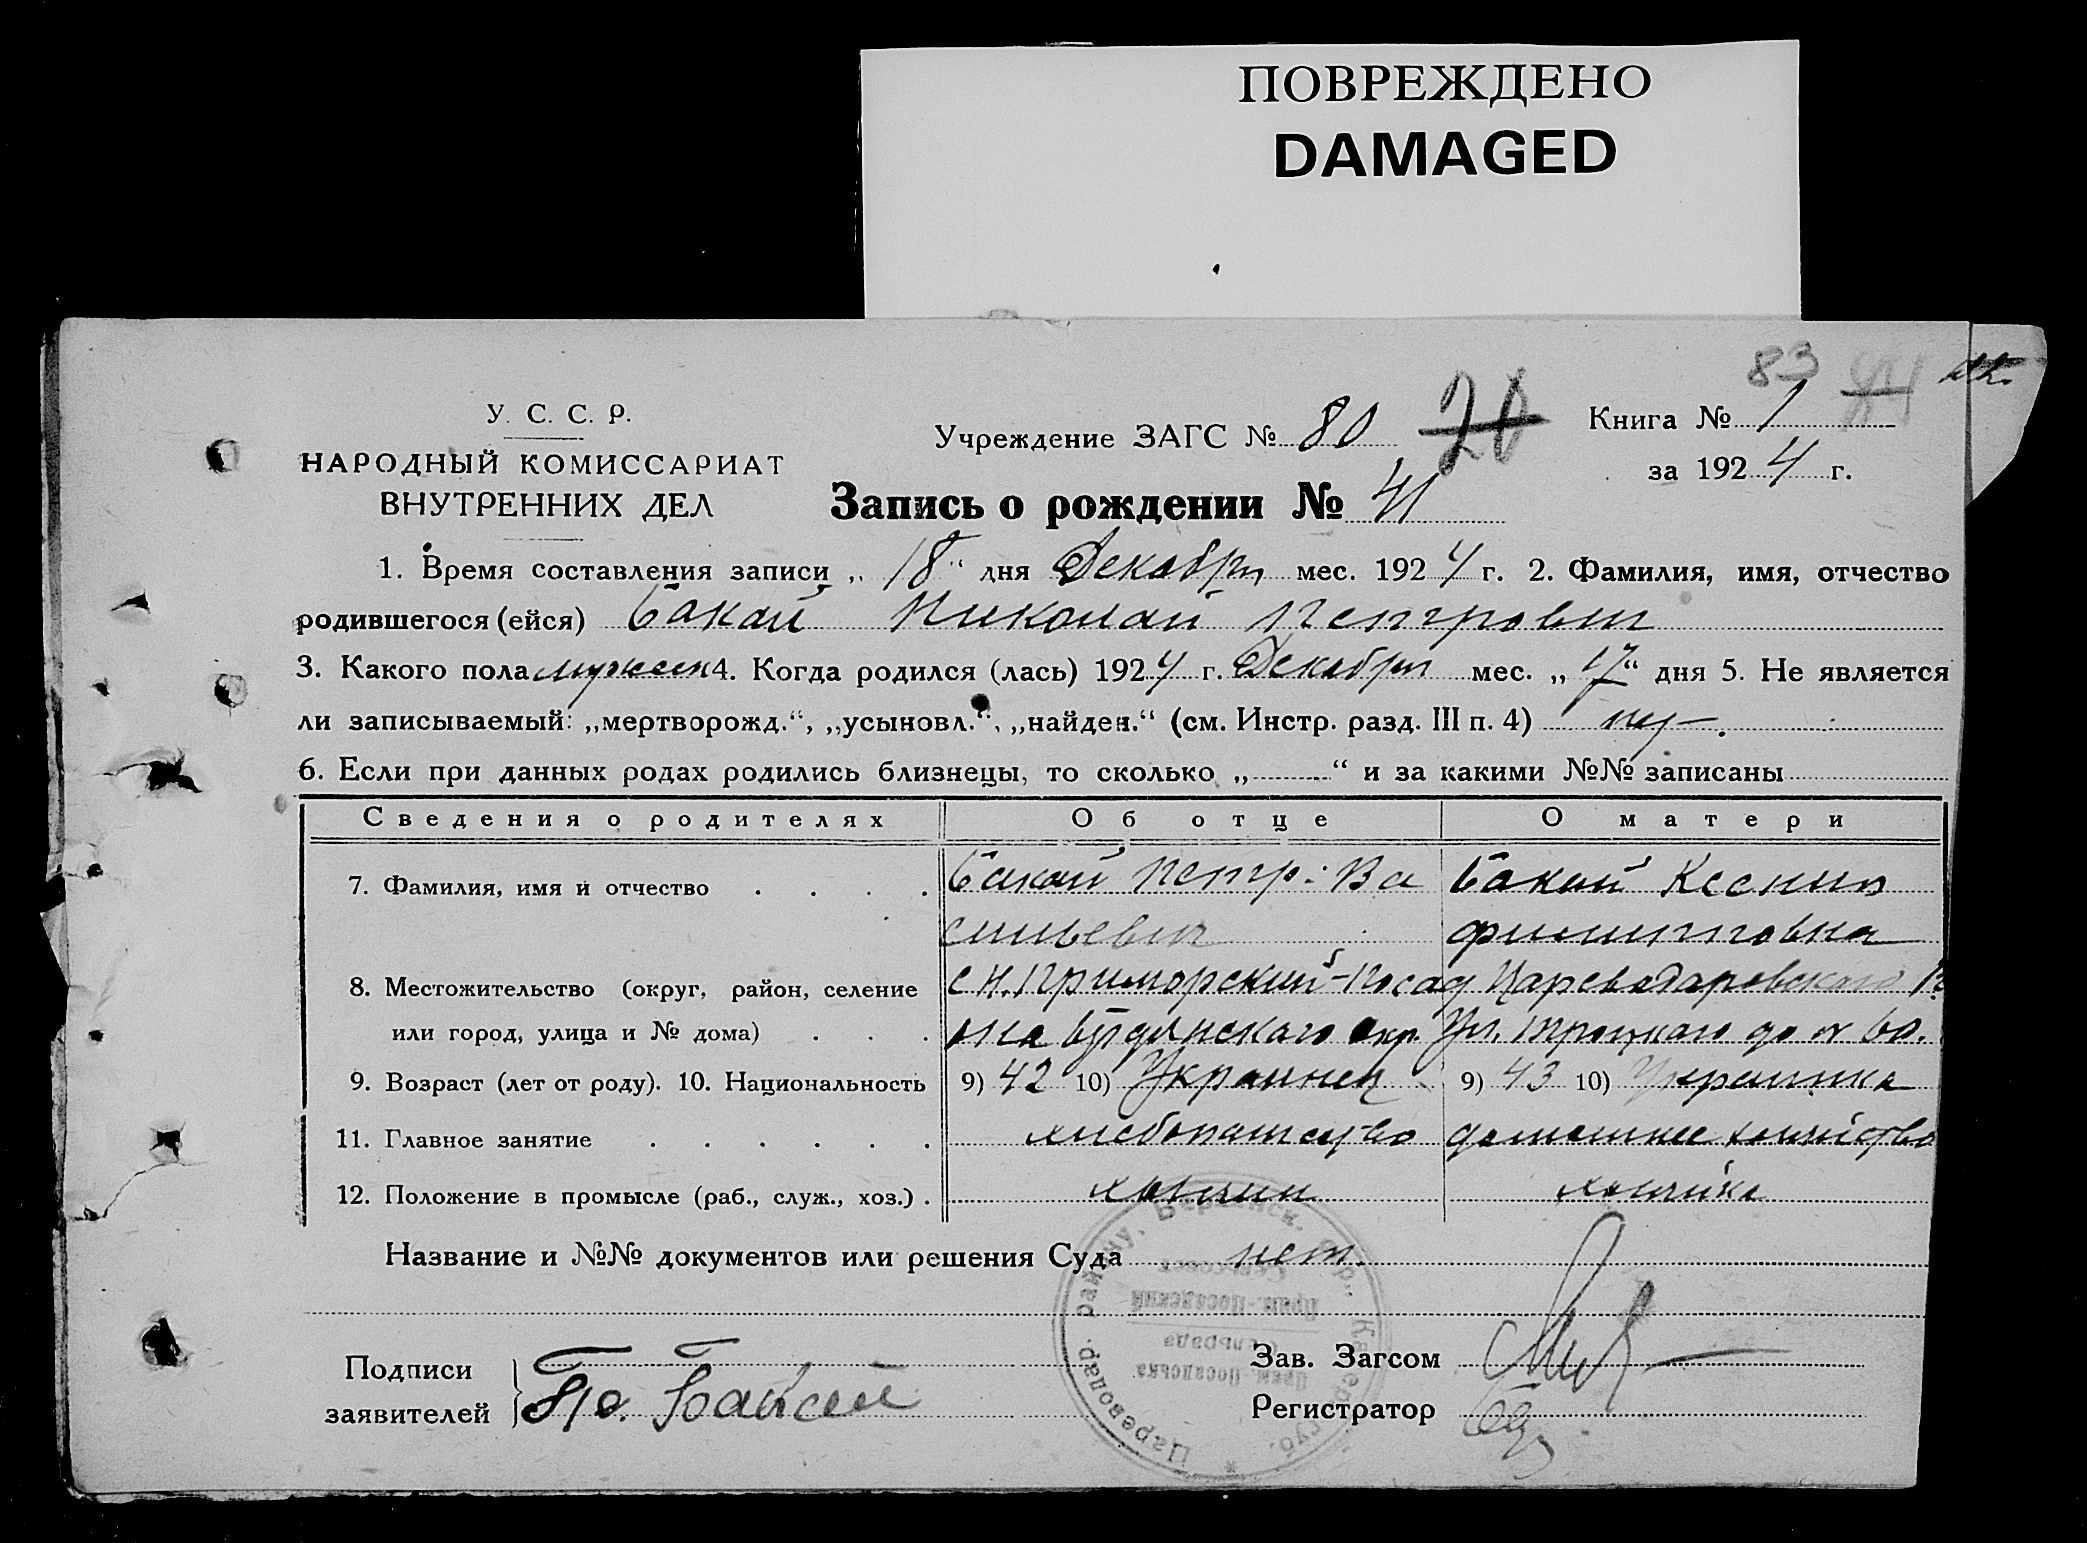 ПОВРЕЖДЕНО
DAMAGED
83
У. С. С. Р.
НАРОДНЫЙ КОМИССАРИАТ
ВНУТРЕННИХ ДЕЛ
Учреждение ЗАГС № 80 20
Книга № 1
за 1924 г.
Запись о рождении № 41
1. Время составления записи „ 18 “ дня Декабря мес. 1924 г. 2. Фамилия, имя, отчество
родившегося (ейся) Бакай Николай Петрович
3. Какого пола мужск 4. Когда родился (лась) 1924 г. Декабря мес. „ 17 “ дня 5. Не является
ли записываемый: „мертворожд.“, „усыновл.“, „найден.“ (см. Инстр. разд. III п. 4)
6. Если при данных родах родились близнецы, то сколько „ “ и за какими №№ записаны
Сведения о родителях Об отце О матери
7. Фамилия, имя и отчество Бакай Петр Ва Бакай Ксения
сильевич Филипповна
8. Местожительство (округ, район, селение с Приморский-Посад Цареводаровского
или город, улица и № дома) окр. Ул. Троцкаго 60.
9. Возраст (лет от роду). 10. Национальность 9) 42 10) Украинец 9) 43 10) Украинка
11. Главное занятие хлебопашество домашнее хозяйство
12. Положение в промысле (раб., служ., хоз.) хозяин хозяйка
Название и №№ документов или решения Суда нет.
Подписи
заявителей Бакай
Зав. Загсом
Регистратор
Цареводар. району, Бердянск. Окр., Катер. губ.
Сельсовет
Прим.-Посадский
Сельрада
Прим.-Посадська